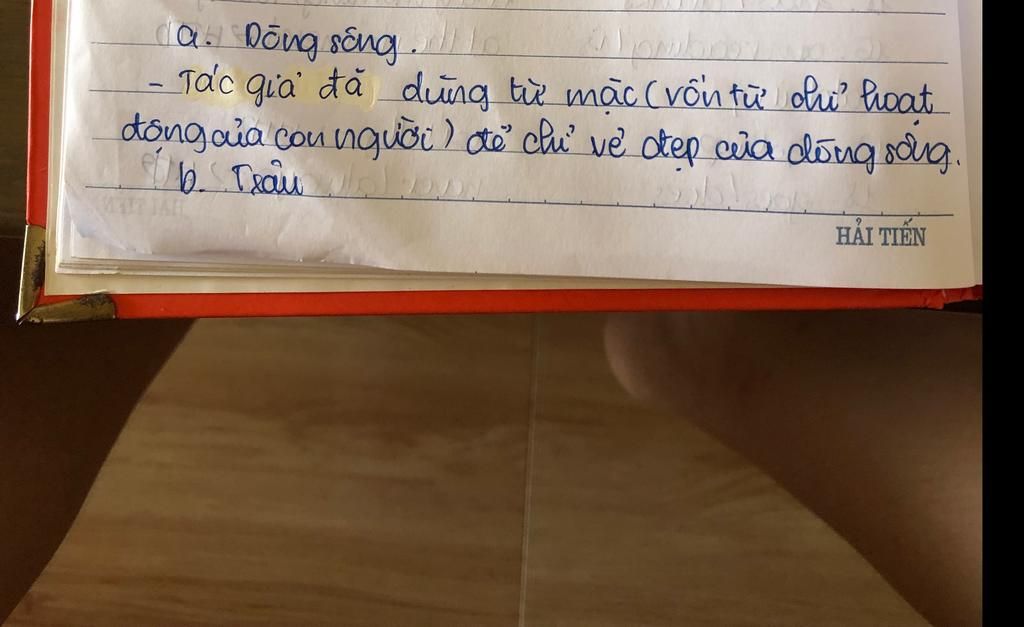 a. Dòng sông.
- Tác giả đã dùng từ mặc (vốn từ chỉ hoạt
động của con người) để chỉ vẻ đẹp của dòng sông.
b. Trâu
HẢI TIẾN